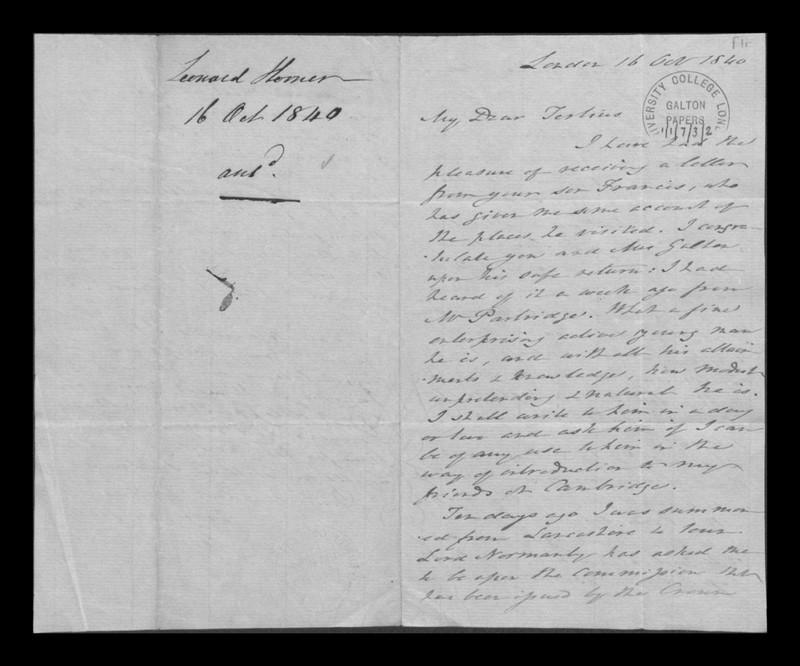 Leonard Horner
16 Oct 1840
ansd.
London 16 Oct 1840
UNIVERSITY COLLEGE LON
GALTON
PAPERS
1/1/7/3/2
My Dear Tertius
I have had the
pleasure of receiving a letter
from your son Francis, who
has given me some account of
the places he visited. I congra-
-tulate you and Mrs Galton
upon his safe return: I had
heard of it a week ago from
Mr Partridge. What a fine
enterprising active young man
he is, and with all his attain
-ments & knowledge, how modest
unpretending & natural he is.
I shall write to him in a day
or two and ask him if I can
be of any use to him in the
way of introduction to my
friends at Cambridge.
Ten days ago I was summon
-ed from Lancashire to town.
Lord Normanby has asked me
to be upon the Commission that
has been issued by the Crown